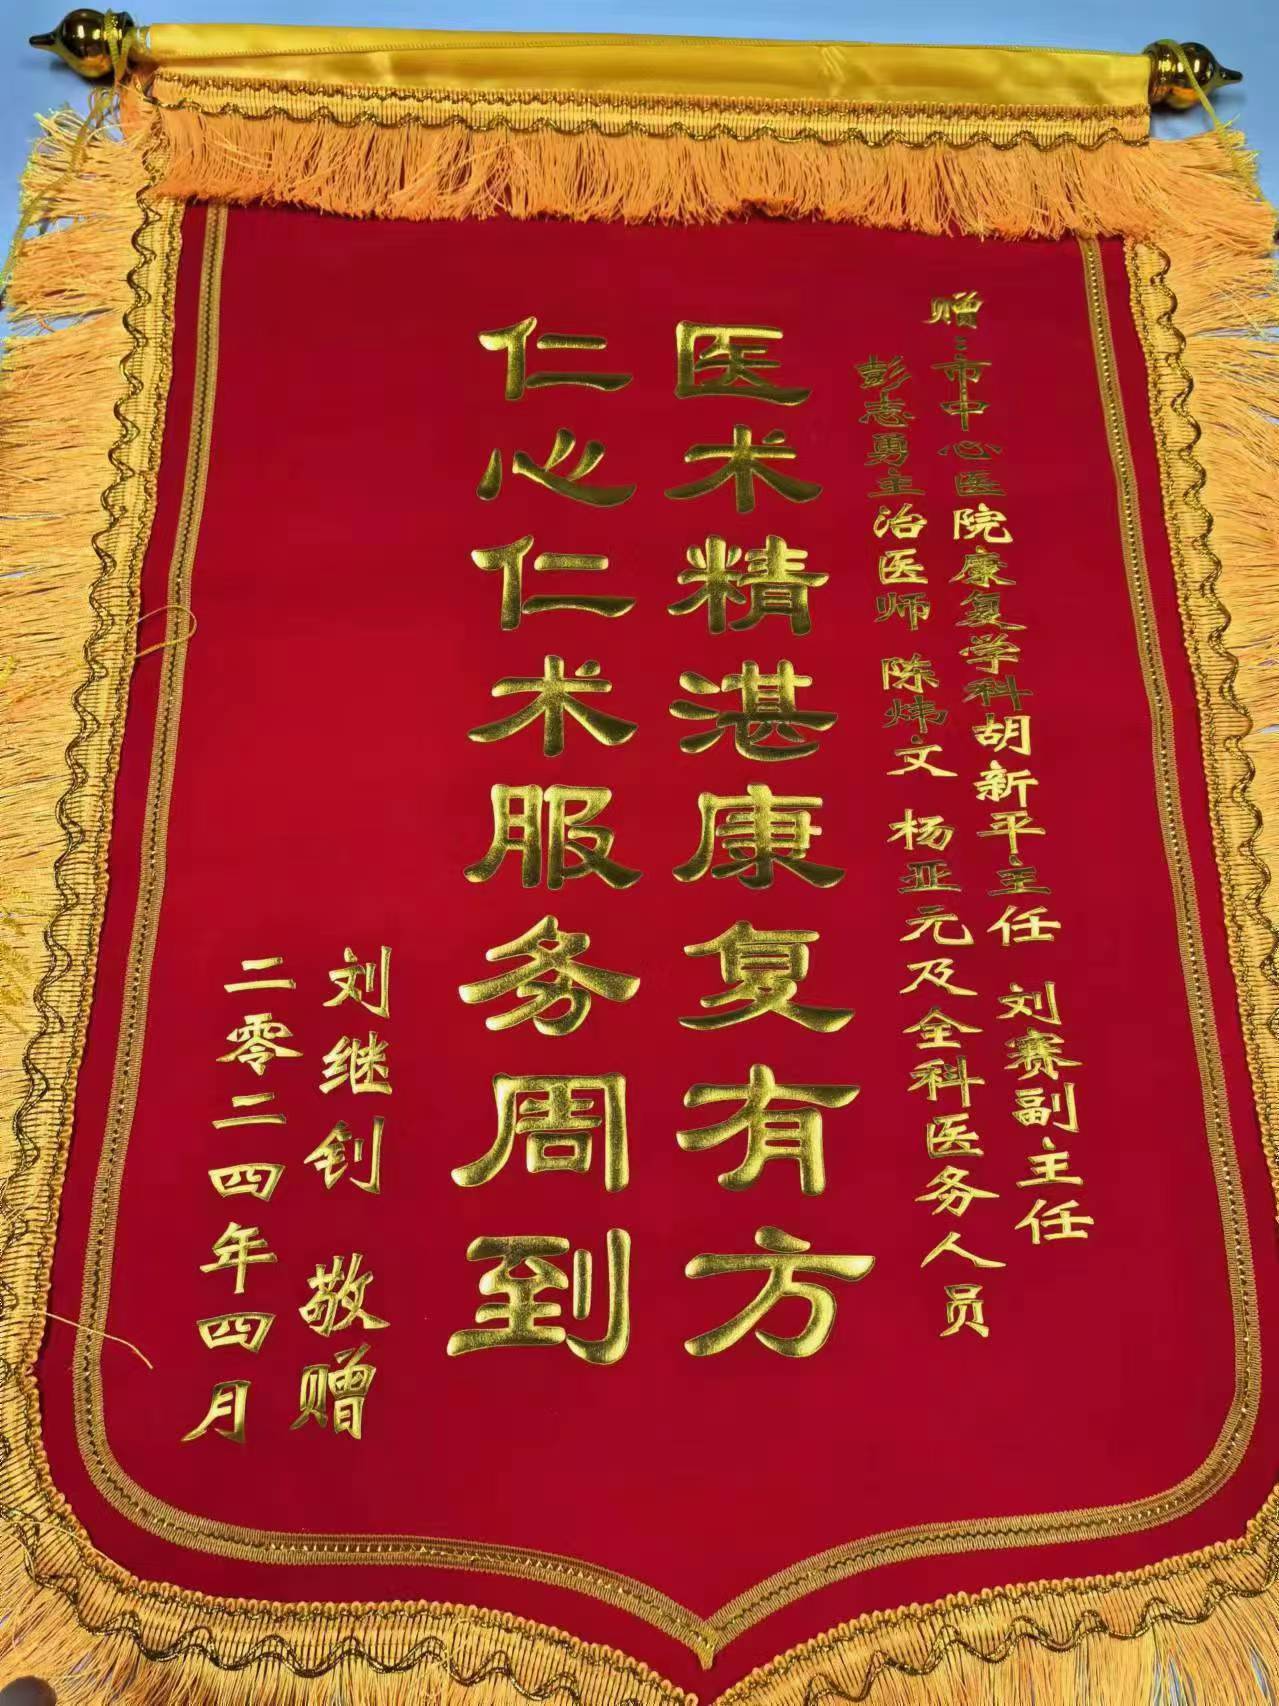 赠：市中心医院康复学科胡新平主任 刘赛副主任
彭志勇主治医师 陈炜文 杨亚元及全科医务人员
医术精湛康复有方
仁心仁术服务周到
刘继钊 敬赠
二零二四年四月